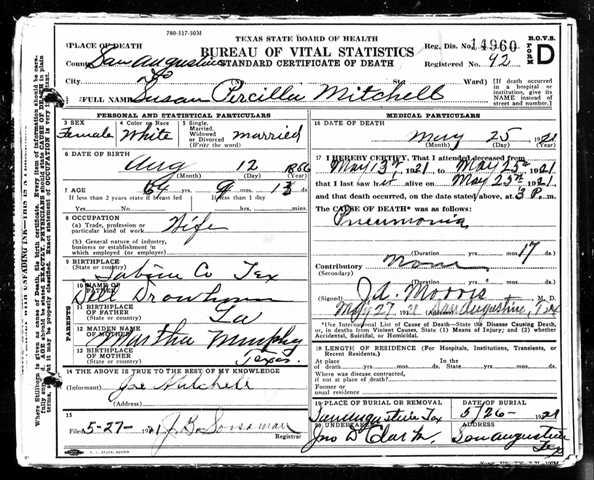 780-317-50M
TEXAS STATE BOARD OF HEALTH
BUREAU OF VITAL STATISTICS
STANDARD CERTIFICATE OF DEATH
Reg. Dis. No. 14960
Registered No. 92
B.O.V.S.
FORM
D
1 PLACE OF DEATH
County San Augustine
City St. Ward)
(If death occurred in a hospital or institution, give its NAME instead of street and number.)
2 FULL NAME Susan Percilla Mitchell
PERSONAL AND STATISTICAL PARTICULARS
3 SEX
Female
4 Color or Race
White
5 Single, Married, Widowed or Divorced (Write the word)
married
6 DATE OF BIRTH
Aug 12 1856
(Month) (Day) (Year)
7 AGE
64 9 13
Years mos. days
If less than 2 years state if breast fed
If less than 1 day
Yes No hrs. min.
8 OCCUPATION
(a) Trade, profession or particular kind of work Wife
(b) General nature of industry, business or establishment in which employed (or employer)
9 BIRTHPLACE
(State or country) Sabine Co Tex
PARENTS
10 NAME OF FATHER
11 BIRTHPLACE OF FATHER
(State or country) La
12 MAIDEN NAME OF MOTHER Martha Murphy
13 BIRTHPLACE OF MOTHER
(State or country) Texas
14 THE ABOVE IS TRUE TO THE BEST OF MY KNOWLEDGE
(Informant) Joe Mitchell
(Address)
15
Filed 5-27- 1921
Registrar
MEDICAL PARTICULARS
16 DATE OF DEATH
May 25 1921
(Month) (Day) (Year)
17 I HEREBY CERTIFY, That I attended deceased from
May 13th, 1921 to May 25th 1921
that I last saw her alive on May 23rd 1921
and that death occurred, on the date stated above, at 3 P. m.
The CAUSE OF DEATH* was as follows:
Pneumonia
(Duration) yrs. mos. 17 ds.
Contributory None
(Secondary)
(Duration) yrs. mos. ds.
(Signed) J.A. Morris M. D.
May 27 1921 (Address) San Augustine, Tex
*Use International List of Cause of Death—State the Disease Causing Death, or, in deaths from Violent Causes, State (1) Means of Injury; and (2) whether Accidental, Suicidal, or Homicidal.
18 LENGTH OF RESIDENCE (For Hospitals, Institutions, Transients, or Recent Residents.)
At place of death yrs. mos. ds. In the State yrs. mos. ds.
Where was disease contracted, if not at place of death?
Former or usual residence
19 PLACE OF BURIAL OR REMOVAL
San Augustine Tex
DATE OF BURIAL
5/26- 1921
20 UNDERTAKER
Jno D Clark
ADDRESS
San Augustine Tex